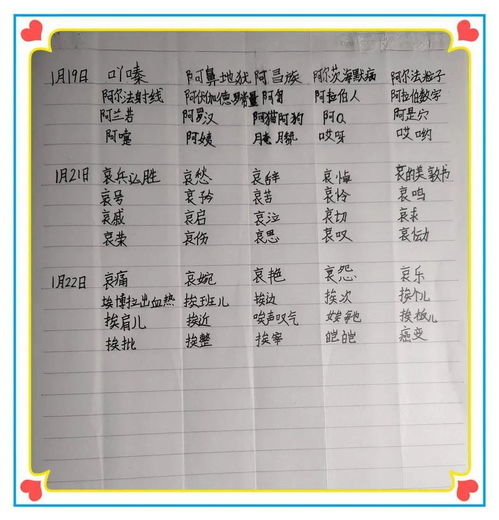 1月19日 吖嗪 阿鼻地狱 阿昌族 阿尔茨海默病 阿尔法粒子
阿尔法射线 阿伏伽德罗常量 阿訇 阿拉伯人 阿拉伯数字
阿兰若 阿罗汉 阿猫阿狗 阿Q 阿是穴
阿嚏 阿姨 哎呀 哎哟
1月21日 哀兵必胜 哀愁 哀悼 哀的美敦书
哀号 哀矜 哀苦 哀怜 哀鸣
哀戚 哀启 哀泣 哀切 哀求
哀荣 哀伤 哀思 哀叹 哀恸
1月22日 哀痛 哀婉 哀艳 哀怨 哀乐
埃博拉出血热 挨班儿 挨边 挨次 挨个儿
挨肩儿 挨近 唉声叹气 挨板儿
挨批 挨整 挨宰 皑皑 癌变